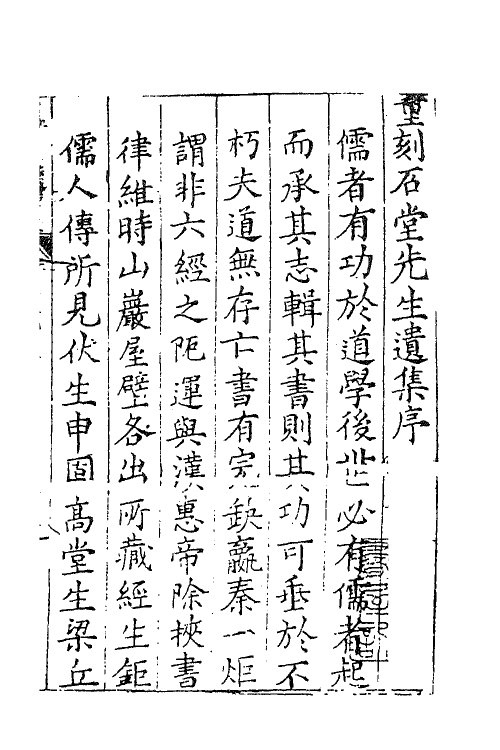 重刻石堂先生遺集序
儒者有功於道學後世必有儒者起
而承其志輯其書則其功可垂於不
朽夫道無存亡書有完缺嬴秦一炬
謂非六經之阨運與漢惠帝除挾書
律維時山巖屋壁各出所藏經生鉅
儒人傳所見伏生申固高堂生梁丘